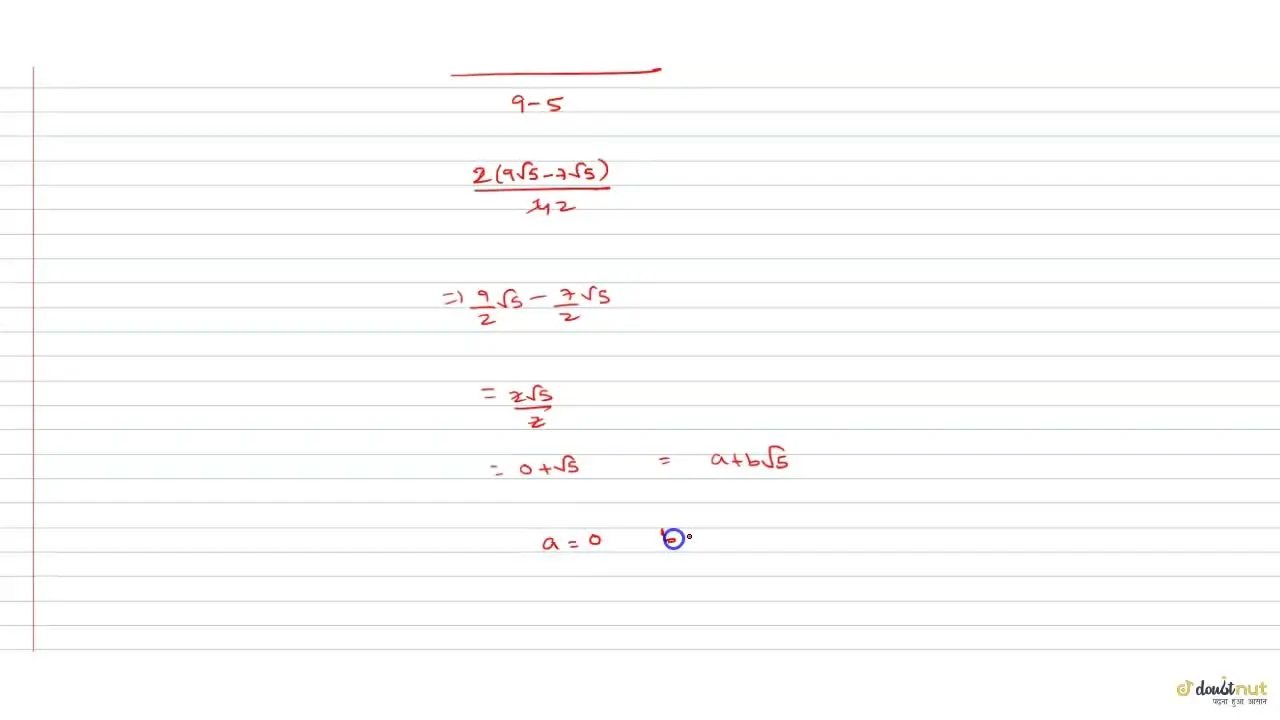 9-5
2(9√5-7√5)
4 2
=) 9/2 √5 - 7/2 √5
= 2√5/2
= 0+√5 = a+b√5
a=0 b
doubtnut
पढ़ना हुआ आसान